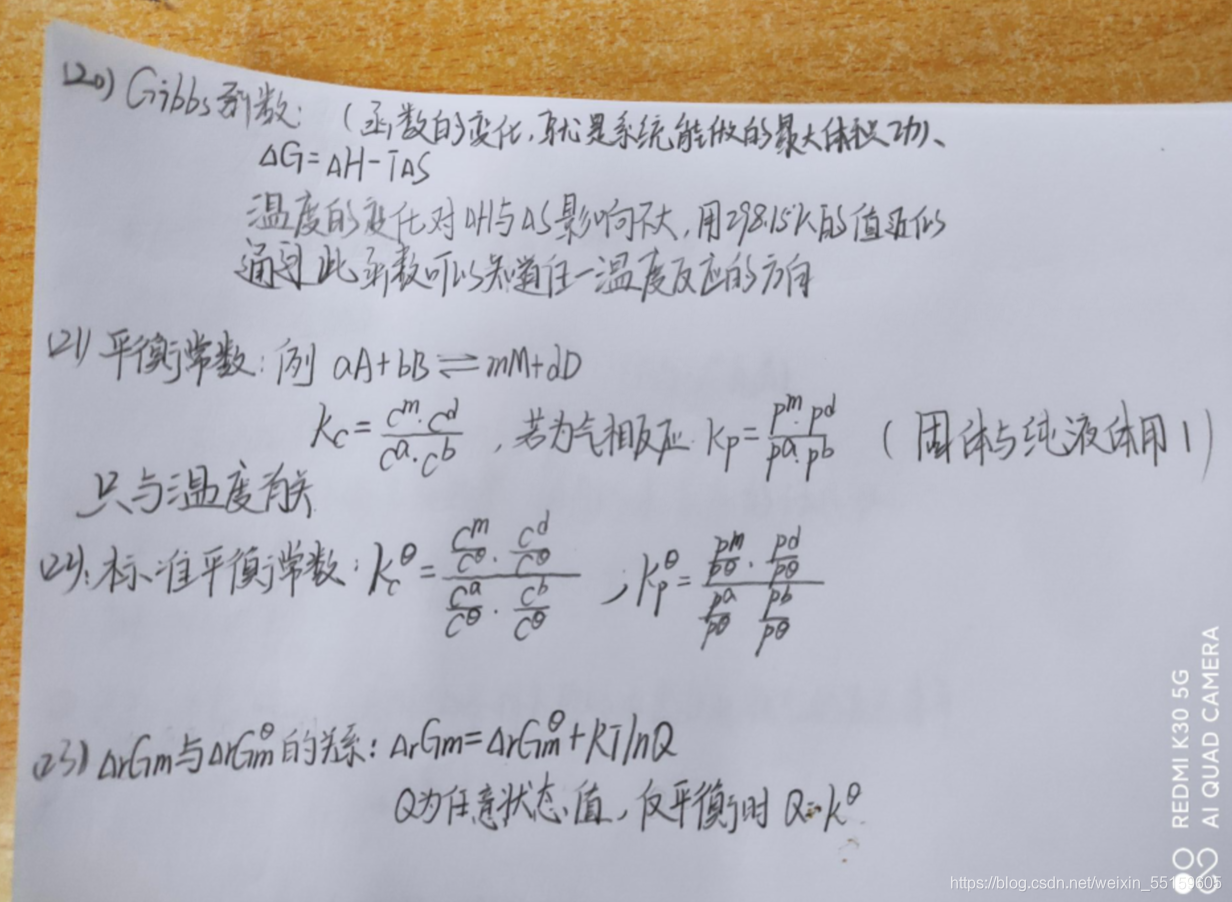 (20) Gibbs函数: (函数的变化,就是系统能做的最大体积功)、
ΔG=ΔH-TΔS
温度的变化对ΔH与ΔS影响不大,用298.15K的值近似
通过此函数可以知道任一温度反应的方向
(21) 平衡常数: 例 aA+bB⇌mM+dD
Kc=(c^m·c^d)/(c^a·c^b) ,若为气相反应 Kp=(p^m·p^d)/(p^a·p^b) (固体与纯液体用1)
只与温度有关
标准平衡常数: Kc^θ=(c^m/c^θ·c^d/c^θ)/(c^a/c^θ·c^b/c^θ) ; Kp^θ=(p^m/p^θ·p^d/p^θ)/(p^a/p^θ p^b/p^θ)
(23) ΔrGm与ΔrGm^θ的关系: ΔrGm=ΔrGm^θ+RTlnQ
Q为任意状态值,仅平衡时 Q=K^θ
REDMI K30 5G
AI QUAD CAMERA
https://blog.csdn.net/weixin_55159605